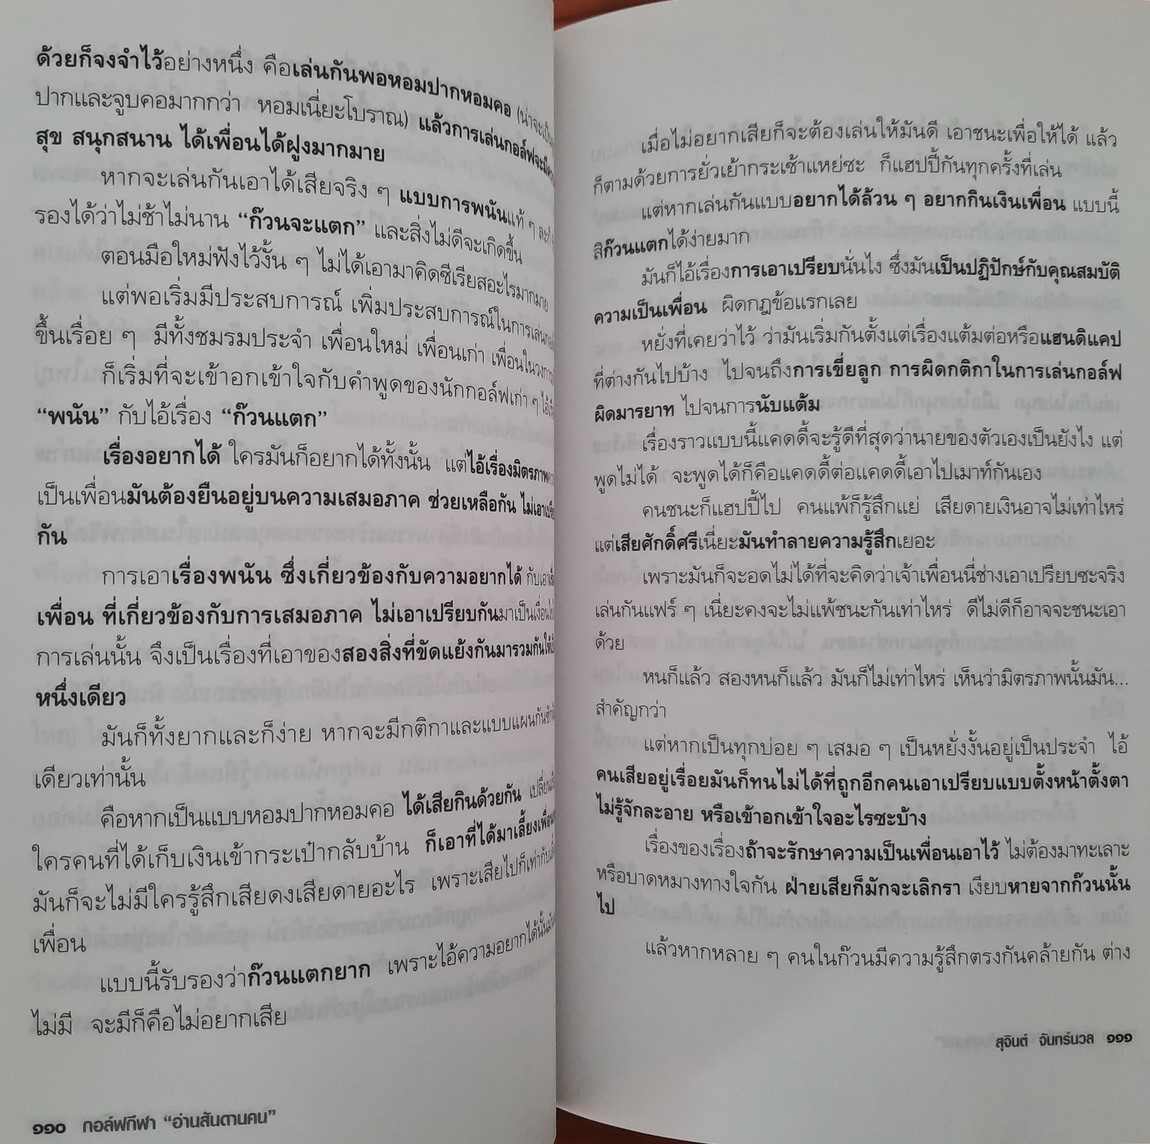 ด้วยก็จงจำไว้อย่างหนึ่ง คือเล่นกันพอหอมปากหอมคอ (น่าจะ
ปากและจูบคอมากกว่า หอมเนี่ยะโบราณ) แล้วการเล่นกอล์ฟจะ
สุข สนุกสนาน ได้เพื่อนได้ฝูงมากมาย
หากจะเล่นกันเอาได้เสียจริง ๆ แบบการพนันแท้ ๆ
รองได้ว่าไม่ช้าไม่นาน “ก๊วนจะแตก” และสิ่งไม่ดีจะเกิดขึ้น
ตอนมือใหม่ฟังไว้งั้น ๆ ไม่ได้เอามาคิดซีเรียสอะไรมากมาย
แต่พอเริ่มมีประสบการณ์ เพิ่มประสบการณ์ในการเล่น
ขึ้นเรื่อย ๆ มีทั้งชมรมประจำ เพื่อนใหม่ เพื่อนเก่า เพื่อนในวงการ
ก็เริ่มที่จะเข้าอกเข้าใจกับคำพูดของนักกอล์ฟเก่า ๆ
“พนัน” กับไอ้เรื่อง “ก๊วนแตก”
เรื่องอยากได้ ใครมันก็อยากได้ทั้งนั้น แต่ไอ้เรื่องมิตรภาพ
เป็นเพื่อนมันต้องยืนอยู่บนความเสมอภาค ช่วยเหลือกัน ไม่เอาเปรียบ
กัน
การเอาเรื่องพนัน ซึ่งเกี่ยวข้องกับความอยากได้ กับ
เพื่อน ที่เกี่ยวข้องกับการเสมอภาค ไม่เอาเปรียบกันมาเป็นเงื่อนไข
การเล่นนั้น จึงเป็นเรื่องที่เอาของสองสิ่งที่ขัดแย้งกันมารวมกันให้
หนึ่งเดียว
มันก็ทั้งยากและก็ง่าย หากจะมีกติกาและแบบแผนกัน
เดียวเท่านั้น
คือหากเป็นแบบหอมปากหอมคอ ได้เสียกินด้วยกัน
ใครคนที่ได้เก็บเงินเข้ากระเป๋ากลับบ้าน ก็เอาที่ได้มาเลี้ยงเพื่อน
มันก็จะไม่มีใครรู้สึกเสียดงเสียดายอะไร เพราะเสียไปก็เท่ากับ
เพื่อน
แบบนี้รับรองว่าก๊วนแตกยาก เพราะไอ้ความอยากได้นั้น
ไม่มี จะมีก็คือไม่อยากเสีย
๑๑๐ กอล์ฟกีฬา “อ่านสันดานคน”
เมื่อไม่อยากเสียก็จะต้องเล่นให้มันดี เอาชนะเพื่อให้ได้ แล้ว
ก็ตามด้วยการยั่วเย้ากระเซ้าแหย่ซะ ก็แฮปปี้กันทุกครั้งที่เล่น
แต่หากเล่นกันแบบอยากได้ล้วน ๆ อยากกินเงินเพื่อน แบบนี้
สิก๊วนแตกได้ง่ายมาก
มันก็ไอ้เรื่องการเอาเปรียบนั่นไง ซึ่งมันเป็นปฏิปักษ์กับคุณสมบัติ
ความเป็นเพื่อน ผิดกฎข้อแรกเลย
หยั่งที่เคยว่าไว้ ว่ามันเริ่มกันตั้งแต่เรื่องแต้มต่อหรือแฮนดิแคป
ที่ต่างกันไปบ้าง ไปจนถึงการเขี่ยลูก การผิดกติกาในการเล่นกอล์ฟ
ผิดมารยาท ไปจนการนับแต้ม
เรื่องราวแบบนี้แคดดี้จะรู้ดีที่สุดว่านายของตัวเองเป็นยังไง แต่
พูดไม่ได้ จะพูดได้ก็คือแคดดี้ต่อแคดดี้เอาไปเมาท์กันเอง
คนชนะก็แฮปปี้ไป คนแพ้ก็รู้สึกแย่ เสียดายเงินอาจไม่เท่าไหร่
แต่เสียศักดิ์ศรีเนี่ยะมันทำลายความรู้สึกเยอะ
เพราะมันก็จะอดไม่ได้ที่จะคิดว่าเจ้าเพื่อนนี่ช่างเอาเปรียบซะจริง
เล่นกันแฟร์ ๆ เนี่ยะคงจะไม่แพ้ชนะกันเท่าไหร่ ดีไม่ดีก็อาจจะชนะเอา
ด้วย
หนก็แล้ว สองหนก็แล้ว มันก็ไม่เท่าไหร่ เห็นว่ามิตรภาพนั้นมัน...
สำคัญกว่า
แต่หากเป็นทุกบ่อย ๆ เสมอ ๆ เป็นหยั่งงั้นอยู่เป็นประจำ ไอ้
คนเสียอยู่เรื่อยมันก็ทนไม่ได้ที่ถูกอีกคนเอาเปรียบแบบตั้งหน้าตั้งตา
ไม่รู้จักละอาย หรือเข้าอกเข้าใจอะไรซะบ้าง
เรื่องของเรื่องถ้าจะรักษาความเป็นเพื่อนเอาไว้ ไม่ต้องมาทะเลาะ
หรือบาดหมางทางใจกัน ฝ่ายเสียก็มักจะเลิกรา เงียบหายจากก๊วนนั้น
ไป
แล้วหากหลาย ๆ คนในก๊วนมีความรู้สึกตรงกันคล้ายกัน ต่าง
สุจินต์ จันทร์นวล ๑๑๑